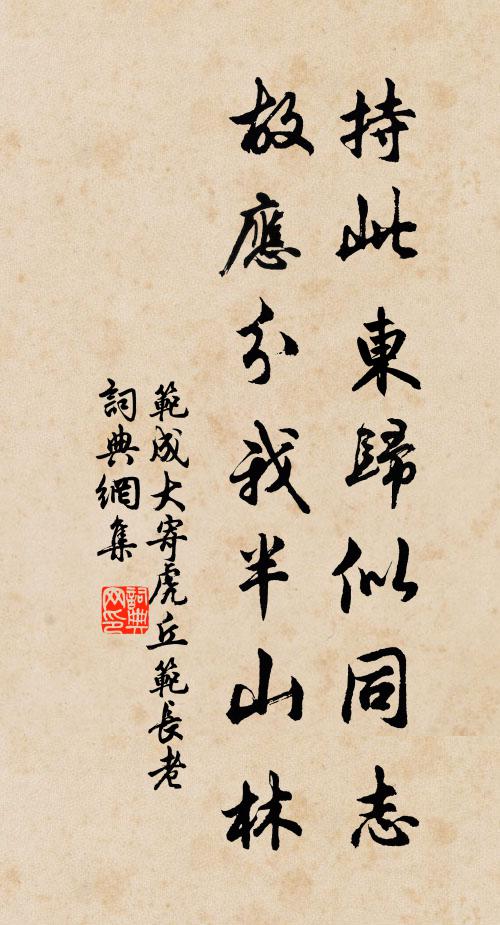 持此東歸似同志
故應分我半山林
範成大寄虎丘範長老
詞典網集
詞典网印